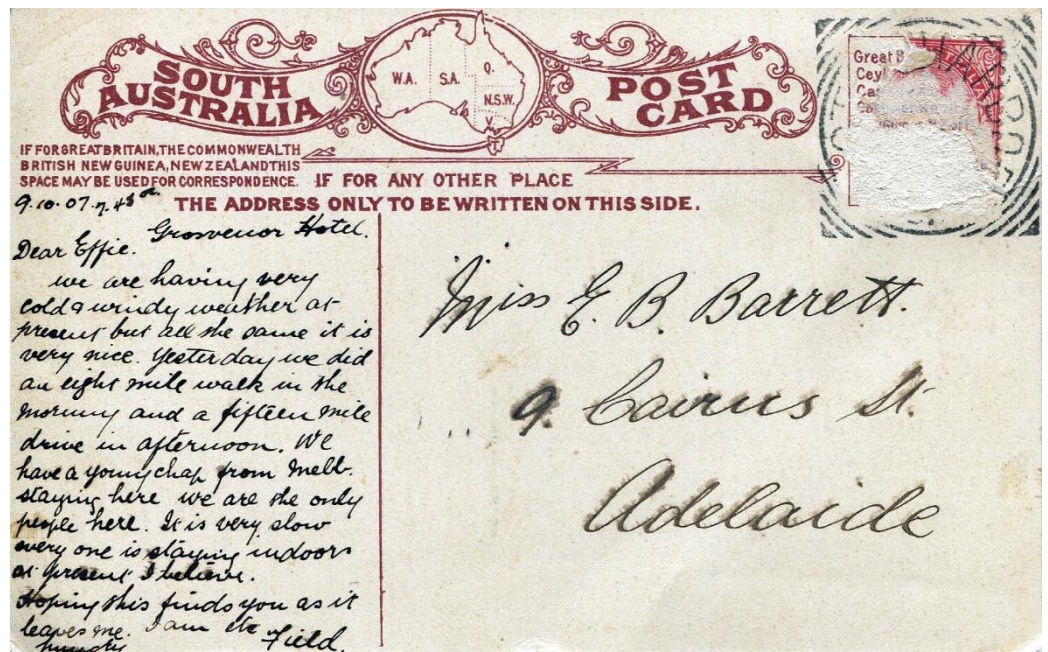 SOUTH
AUSTRALIA
W.A.
S.A.
Q.
N.S.W.
POST
CARD
Great B
Ceyl
Ca
IF FOR GREAT BRITAIN, THE COMMONWEALTH
BRITISH NEW GUINEA, NEW ZEALAND THIS
SPACE MAY BE USED FOR CORRESPONDENCE.
IF FOR ANY OTHER PLACE
THE ADDRESS ONLY TO BE WRITTEN ON THIS SIDE.
9.10.07.
Grosvenor Hotel.
Dear Effie.
we are having very
cold & windy weather at
present but all the same it is
very nice. Yesterday we did
an eight mile walk in the
morning and a fifteen mile
drive in afternoon. We
have a young chap from Melb.
staying here we are the only
people here. It is very slow
every one is staying indoors
at present I believe.
Hoping this finds you as it
leaves me. I am etc
Field.
Miss E. B. Barrett.
9. Cairns St.
Adelaide